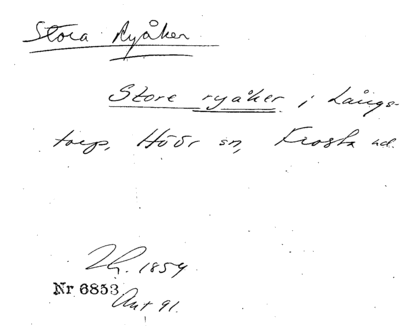 Stora Ryåker
Store ryåker i Långs-
torp, Höör sn, Frosta hd.
Lh. 1854
Nr 6853
Ant 91.